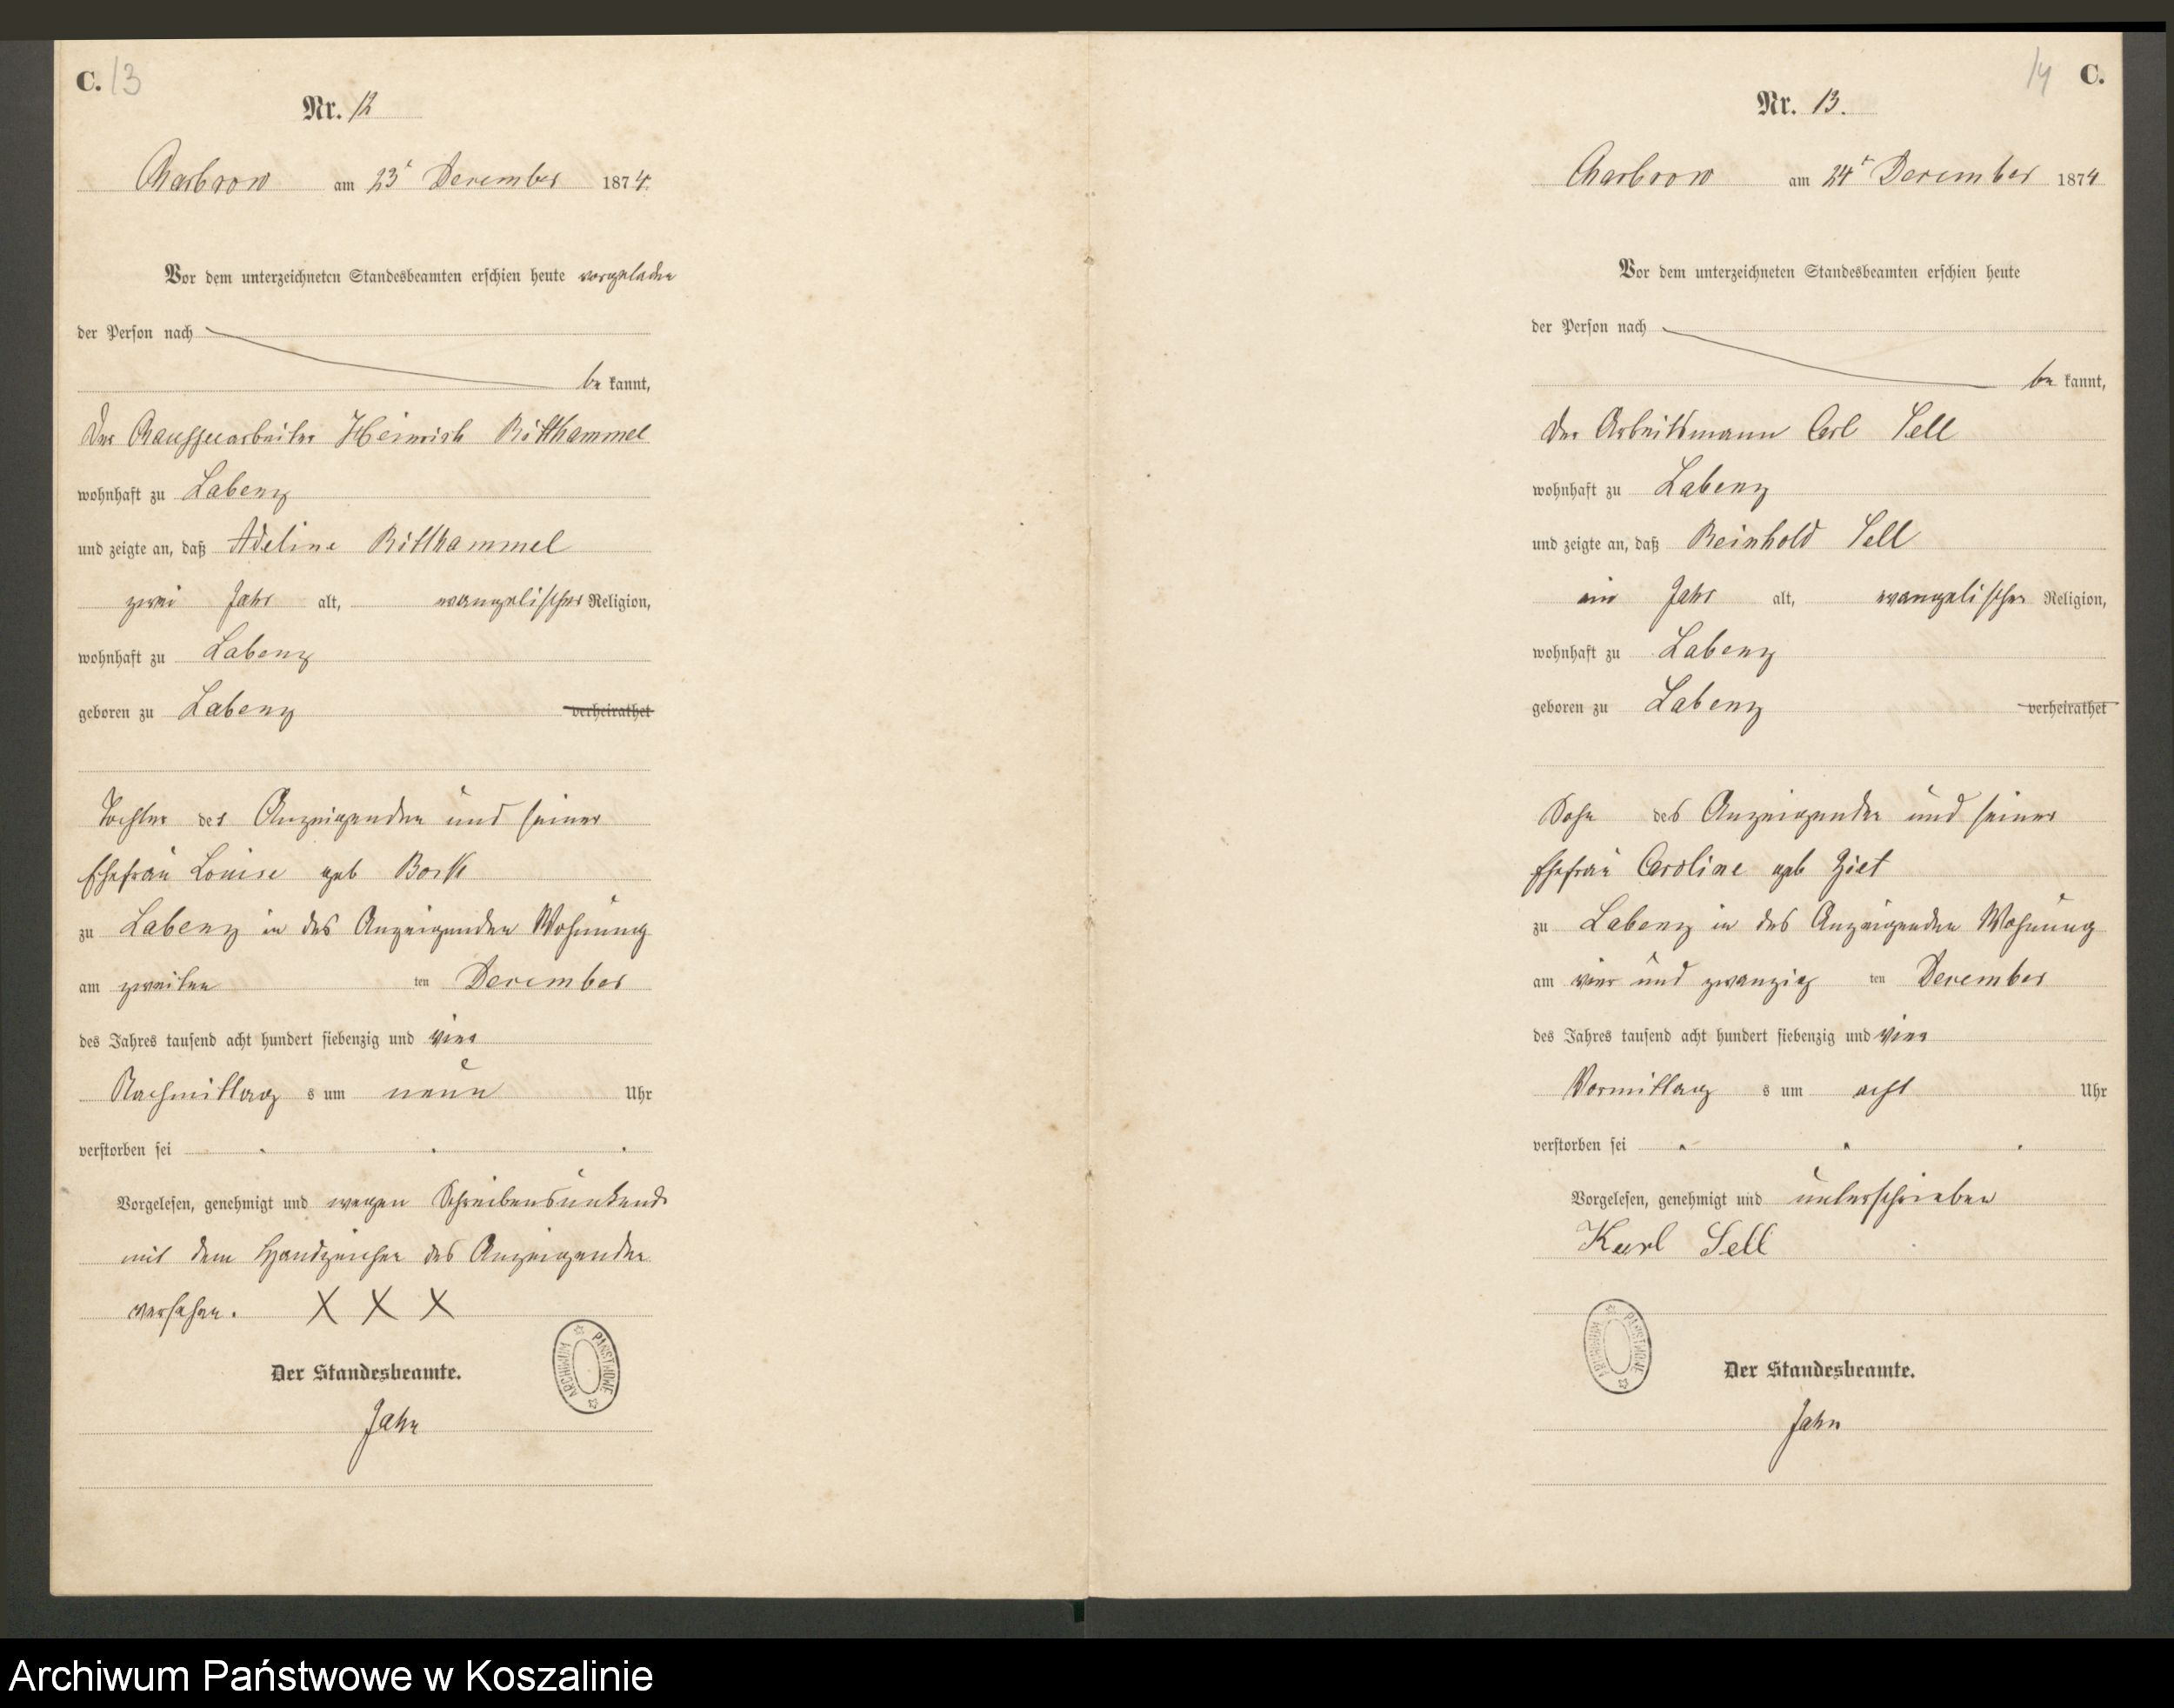 C. 13
Nr. 12
Charbrow am 23t December 1874.
Vor dem unterzeichneten Standesbeamten erschien heute vorgeladen
der Person nach
be kannt,
Der Chausseearbeiter Heinrich Ritthammel
wohnhaft zu Labenz
und zeigte an, daß Adeline Ritthammel
zwei Jahr alt, evangelischer Religion,
wohnhaft zu Labenz
geboren zu Labenz verheirathet
Tochter des Anzeigenden und seiner
Ehefrau Louise geb Bork
zu Labenz in des Anzeigenden Wohnung
am zweiten ten December
des Jahres tausend acht hundert siebenzig und vier
Nachmittag s um neun Uhr
verstorben sei
Vorgelesen, genehmigt und wegen Schreibensunkunde
mit dem Handzeichen des Anzeigenden
versehen. X X X
ARCHIWUM PAŃSTWOWE
Der Standesbeamte.
Jahn
14 C.
Nr. 13.
Charbrow am 24t December 1874
Vor dem unterzeichneten Standesbeamten erschien heute
der Person nach
be kannt,
Der Arbeitsmann Carl Sell
wohnhaft zu Labenz
und zeigte an, daß Reinhold Sell
ein Jahr alt, evangelischer Religion,
wohnhaft zu Labenz
geboren zu Labenz verheirathet
Sohn des Anzeigenden und seiner
Ehefrau Caroline geb Ziet
zu Labenz in des Anzeigenden Wohnung
am vier und zwanzig ten December
des Jahres tausend acht hundert siebenzig und vier
Vormittag s um acht Uhr
verstorben sei
Vorgelesen, genehmigt und unterschrieben
Karl Sell
ARCHIWUM PAŃSTWOWE
Der Standesbeamte.
Jahn
Archiwum Państwowe w Koszalinie